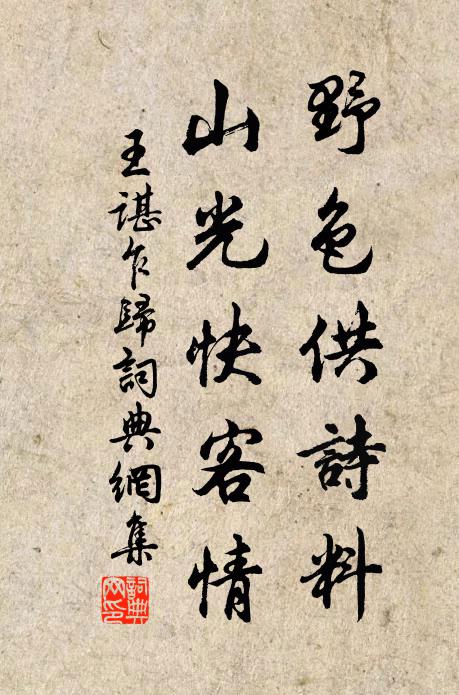 野色供詩料
山光快客情
王諶乍歸詞典網集
詞典网印